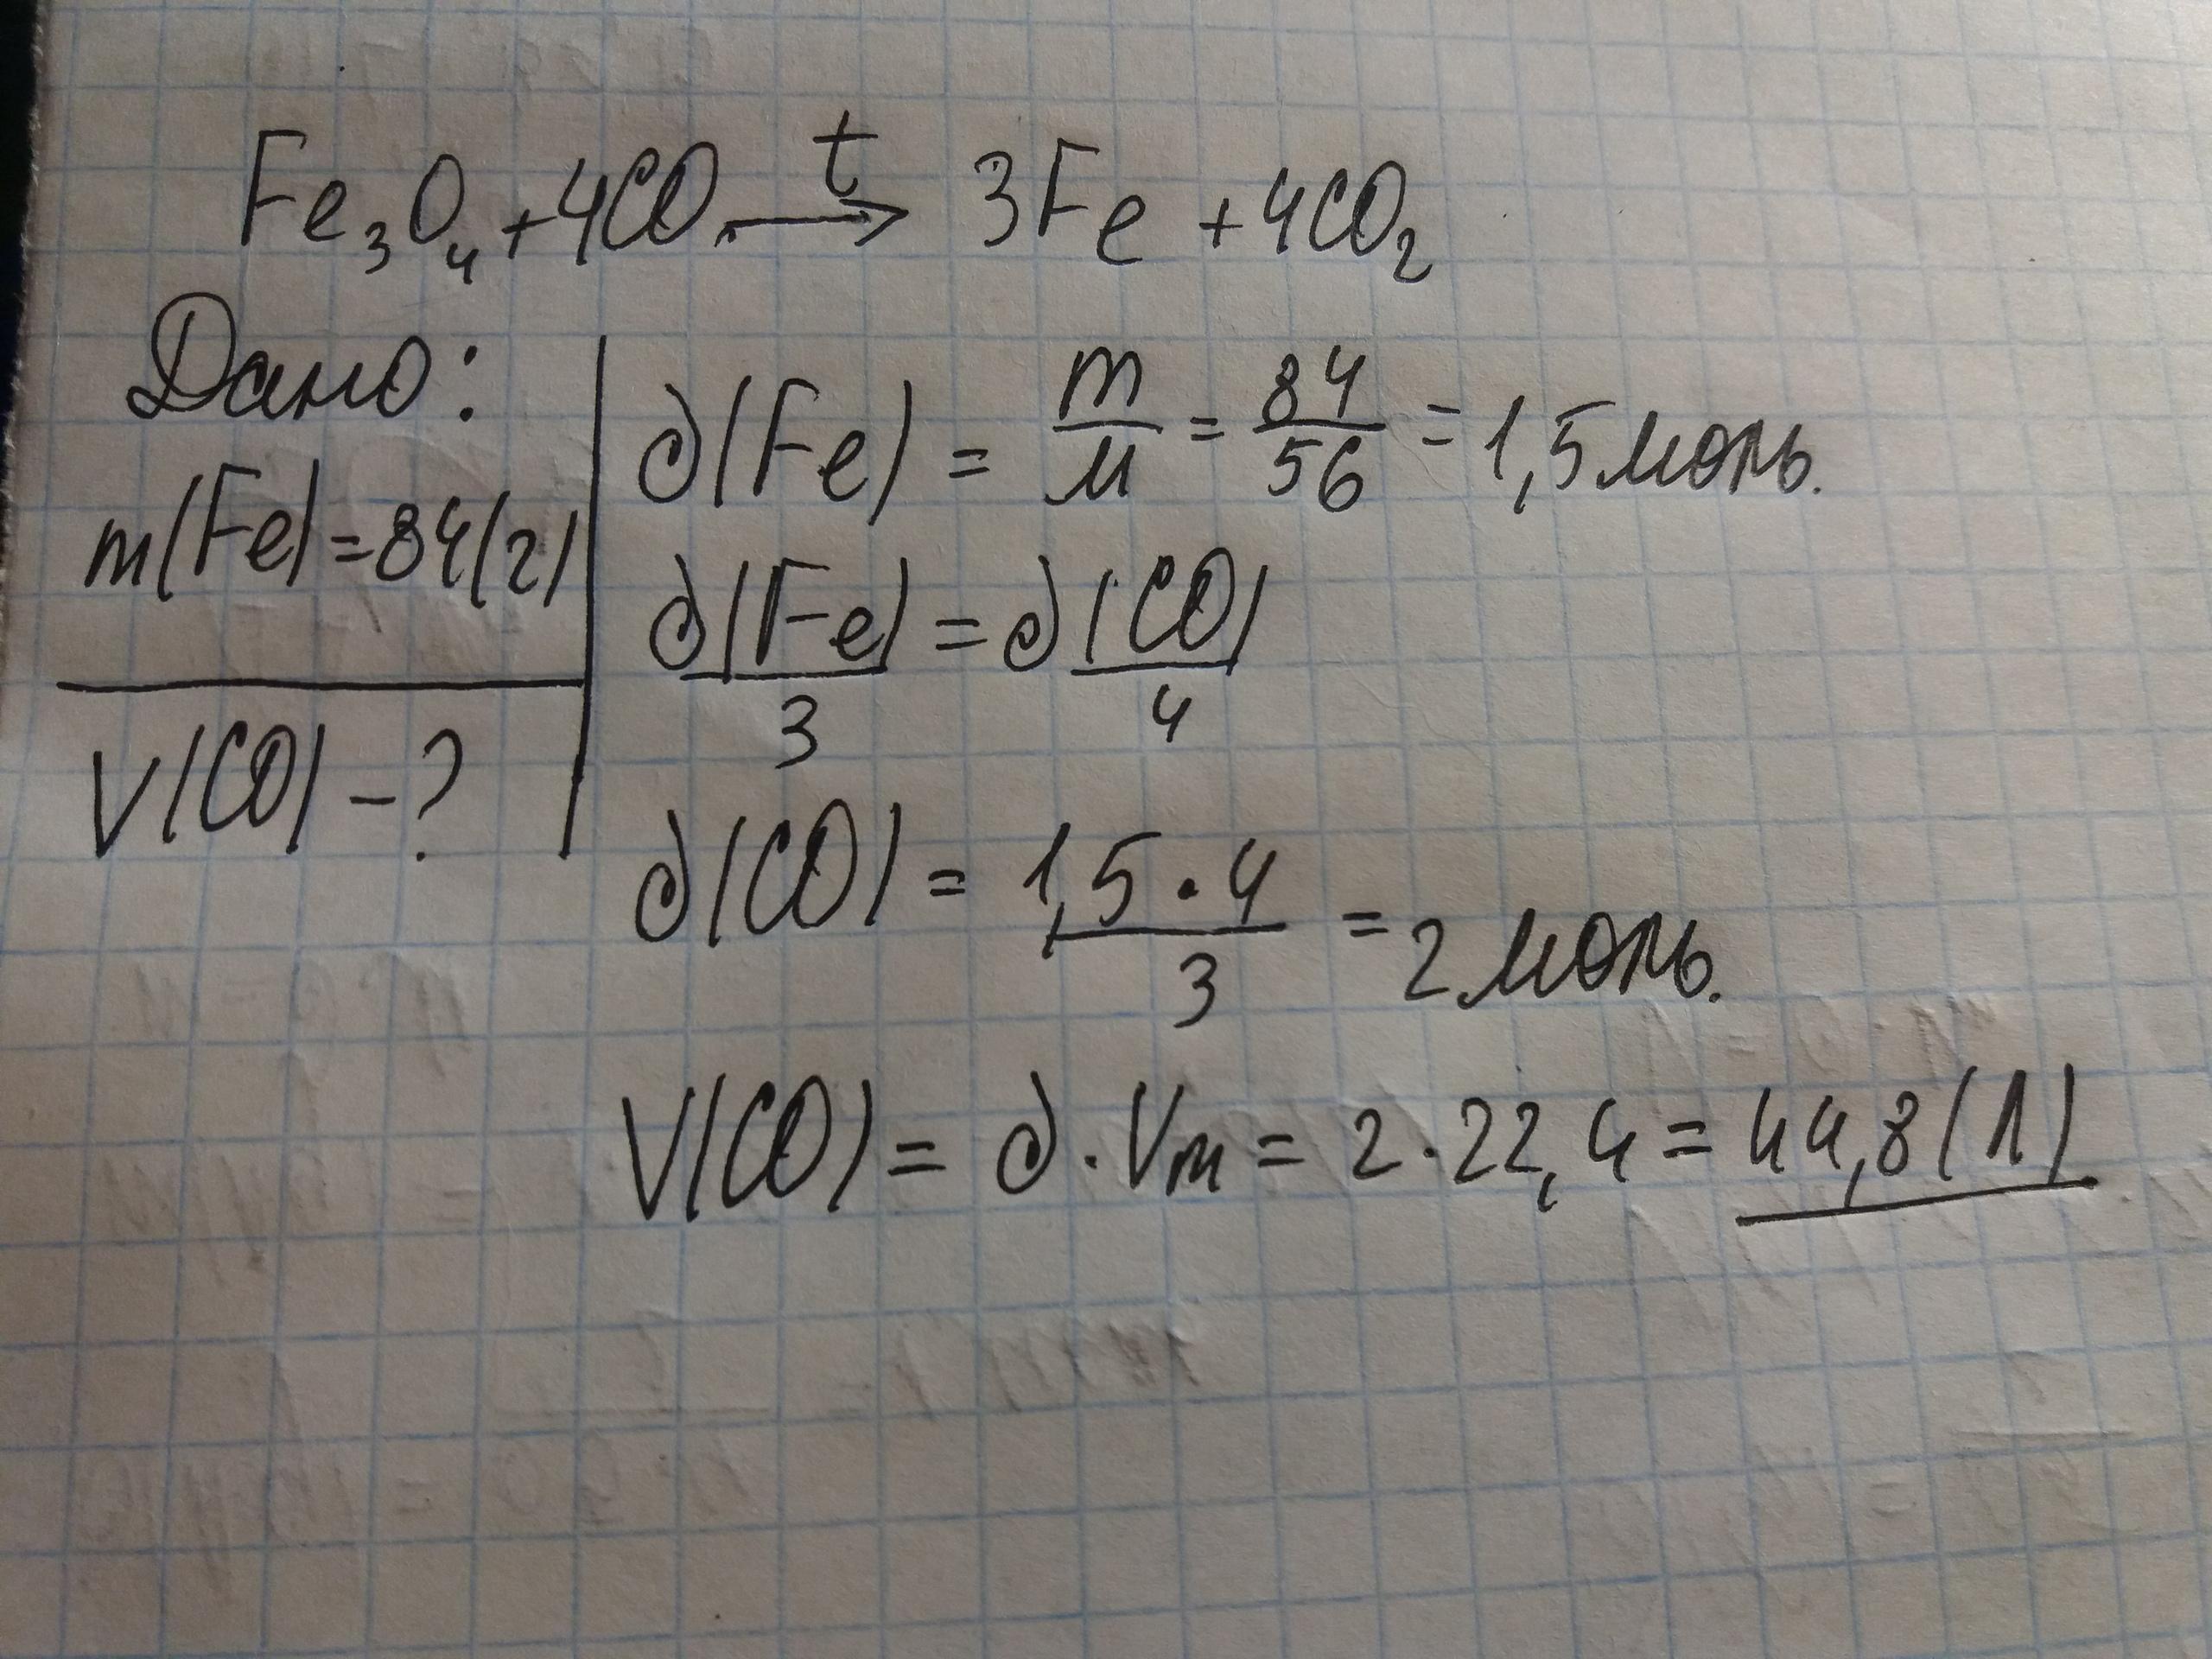 Fe₃O₄+4CO →t 3Fe +4CO₂
Дано:
m(Fe)=84(г)
V(CO) -?
∂(Fe) = m/M = 84/56 = 1,5 моль.
∂(Fe)/3 = ∂(CO)/4
∂(CO) = 1,5·4/3 = 2 моль.
V(CO) = ∂·Vm = 2·22,4 = 44,8(л)